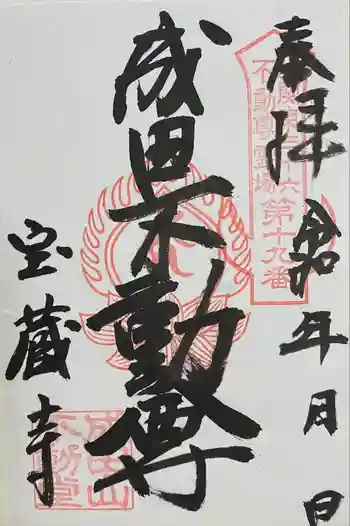 奉拝
令和 年 月 日
不動尊霊場
第十九番
成田不動尊
宝蔵寺
成田山
不動堂